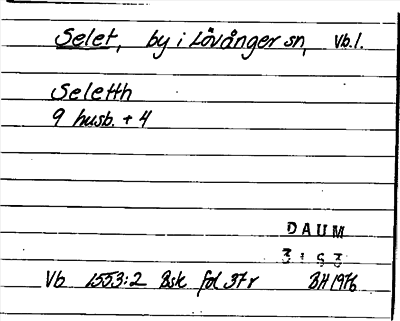 Selet, by i Lövånger sn, Vb.l.
Seletth
9 husb. + 4
DAUM
3193
Vb 1553:2 Bsk fol 37r BH 1976